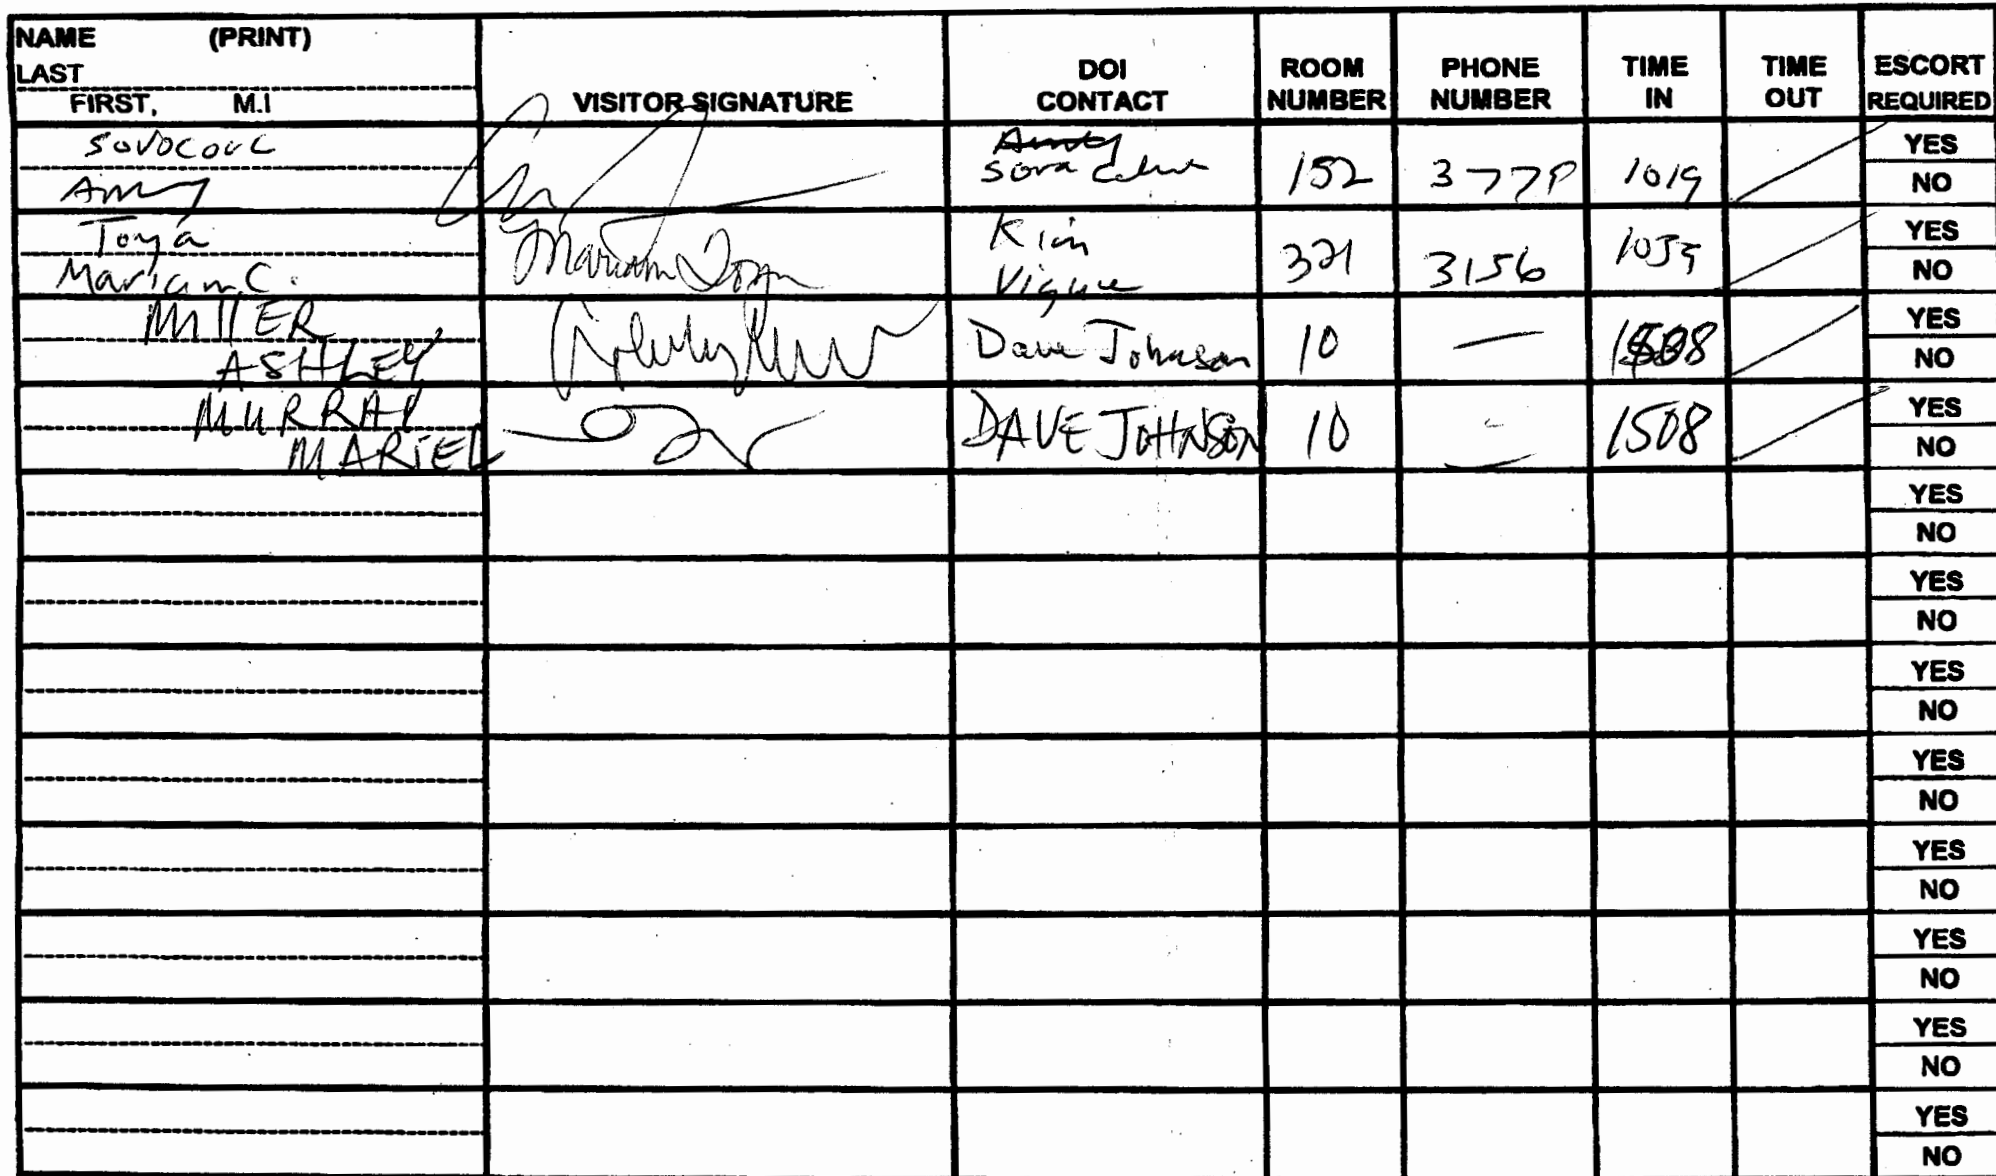 NAME (PRINT)
LAST
FIRST, M.I
VISITOR SIGNATURE
DOI
CONTACT
ROOM
NUMBER
PHONE
NUMBER
TIME
IN
TIME
OUT
ESCORT
REQUIRED
Amy
152
1019
YES
NO
Toya
Mariam C.
Mariam Toya
Kim
321 3156
YES
NO
MILLER
ASHLEY
Dave Johnson 10 — 1508
YES
NO
MURRAY
MARIEL
DAVE JOHNSON 10 1508
YES
NO
YES
NO
YES
NO
YES
NO
YES
NO
YES
NO
YES
NO
YES
NO
YES
NO